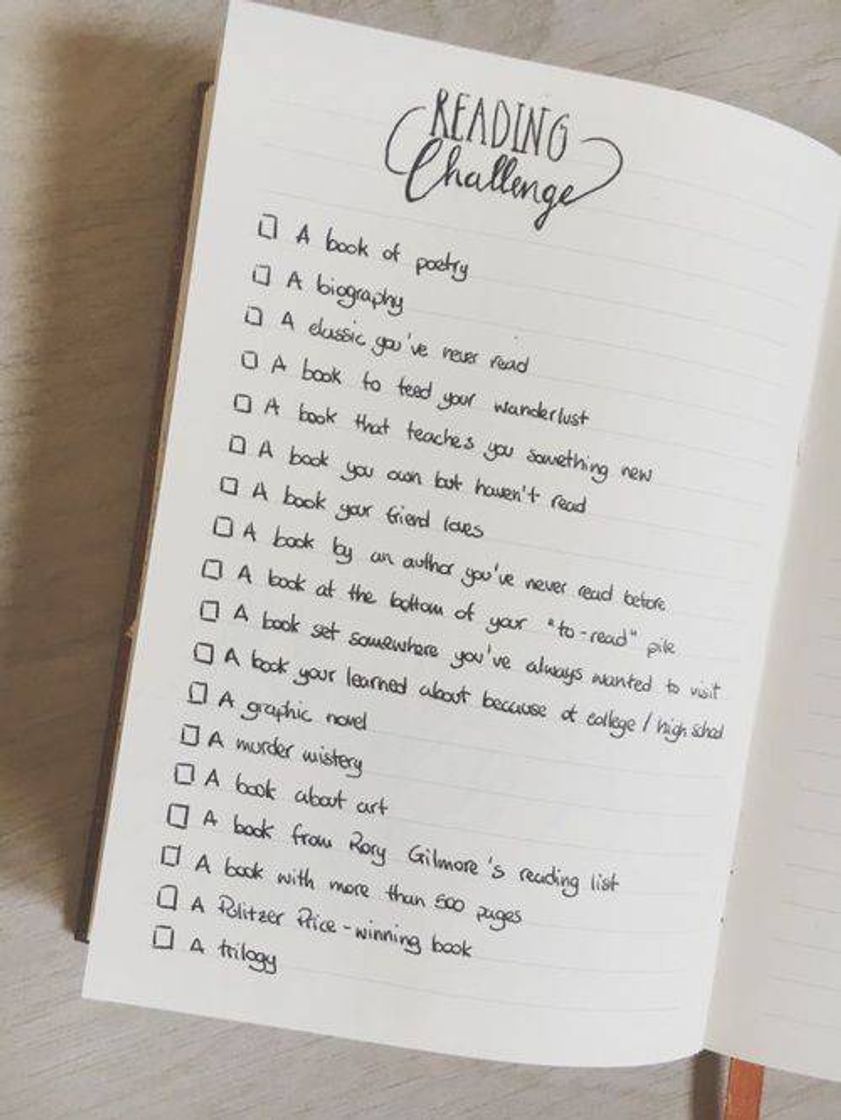 READING
Challenge
A book of poetry
A biography
A classic you've never read
A book to feed your wanderlust
A book that teaches you something new
A book you own but haven't read
A book your friend loves
A book by an author you've never read before
A book at the bottom of your "to-read" pile
A book set somewhere you've always wanted to visit
A book your learned about because of college / high school
A graphic novel
A murder wistery
A book about art
A book from Rory Gilmore's reading list
A book with more than 500 pages
A Pulitzer Price-winning book
A trilogy